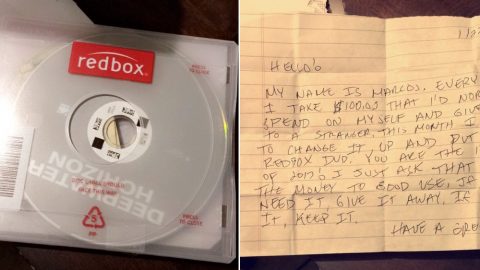 redbox.
DEEPWATER
HORIZON
DISC LABEL SHOULD
FACE THIS WAY
PRESS
TO CLOSE
5
PP
HELLO!
MY NAME IS MARCOS. EVERY
I TAKE $100.00 THAT I'D NOR
SPEND ON MYSELF AND GIVE
TO A STRANGER. THIS MONTH I
TO CHANGE IT UP AND PUT
REDBOX DVD. YOU ARE THE 1
OF 2017! I JUST ASK THAT
THE MONEY TO GOOD USE, IF
NEED IT, GIVE IT AWAY, IF
IT, KEEP IT.
HAVE A GRE